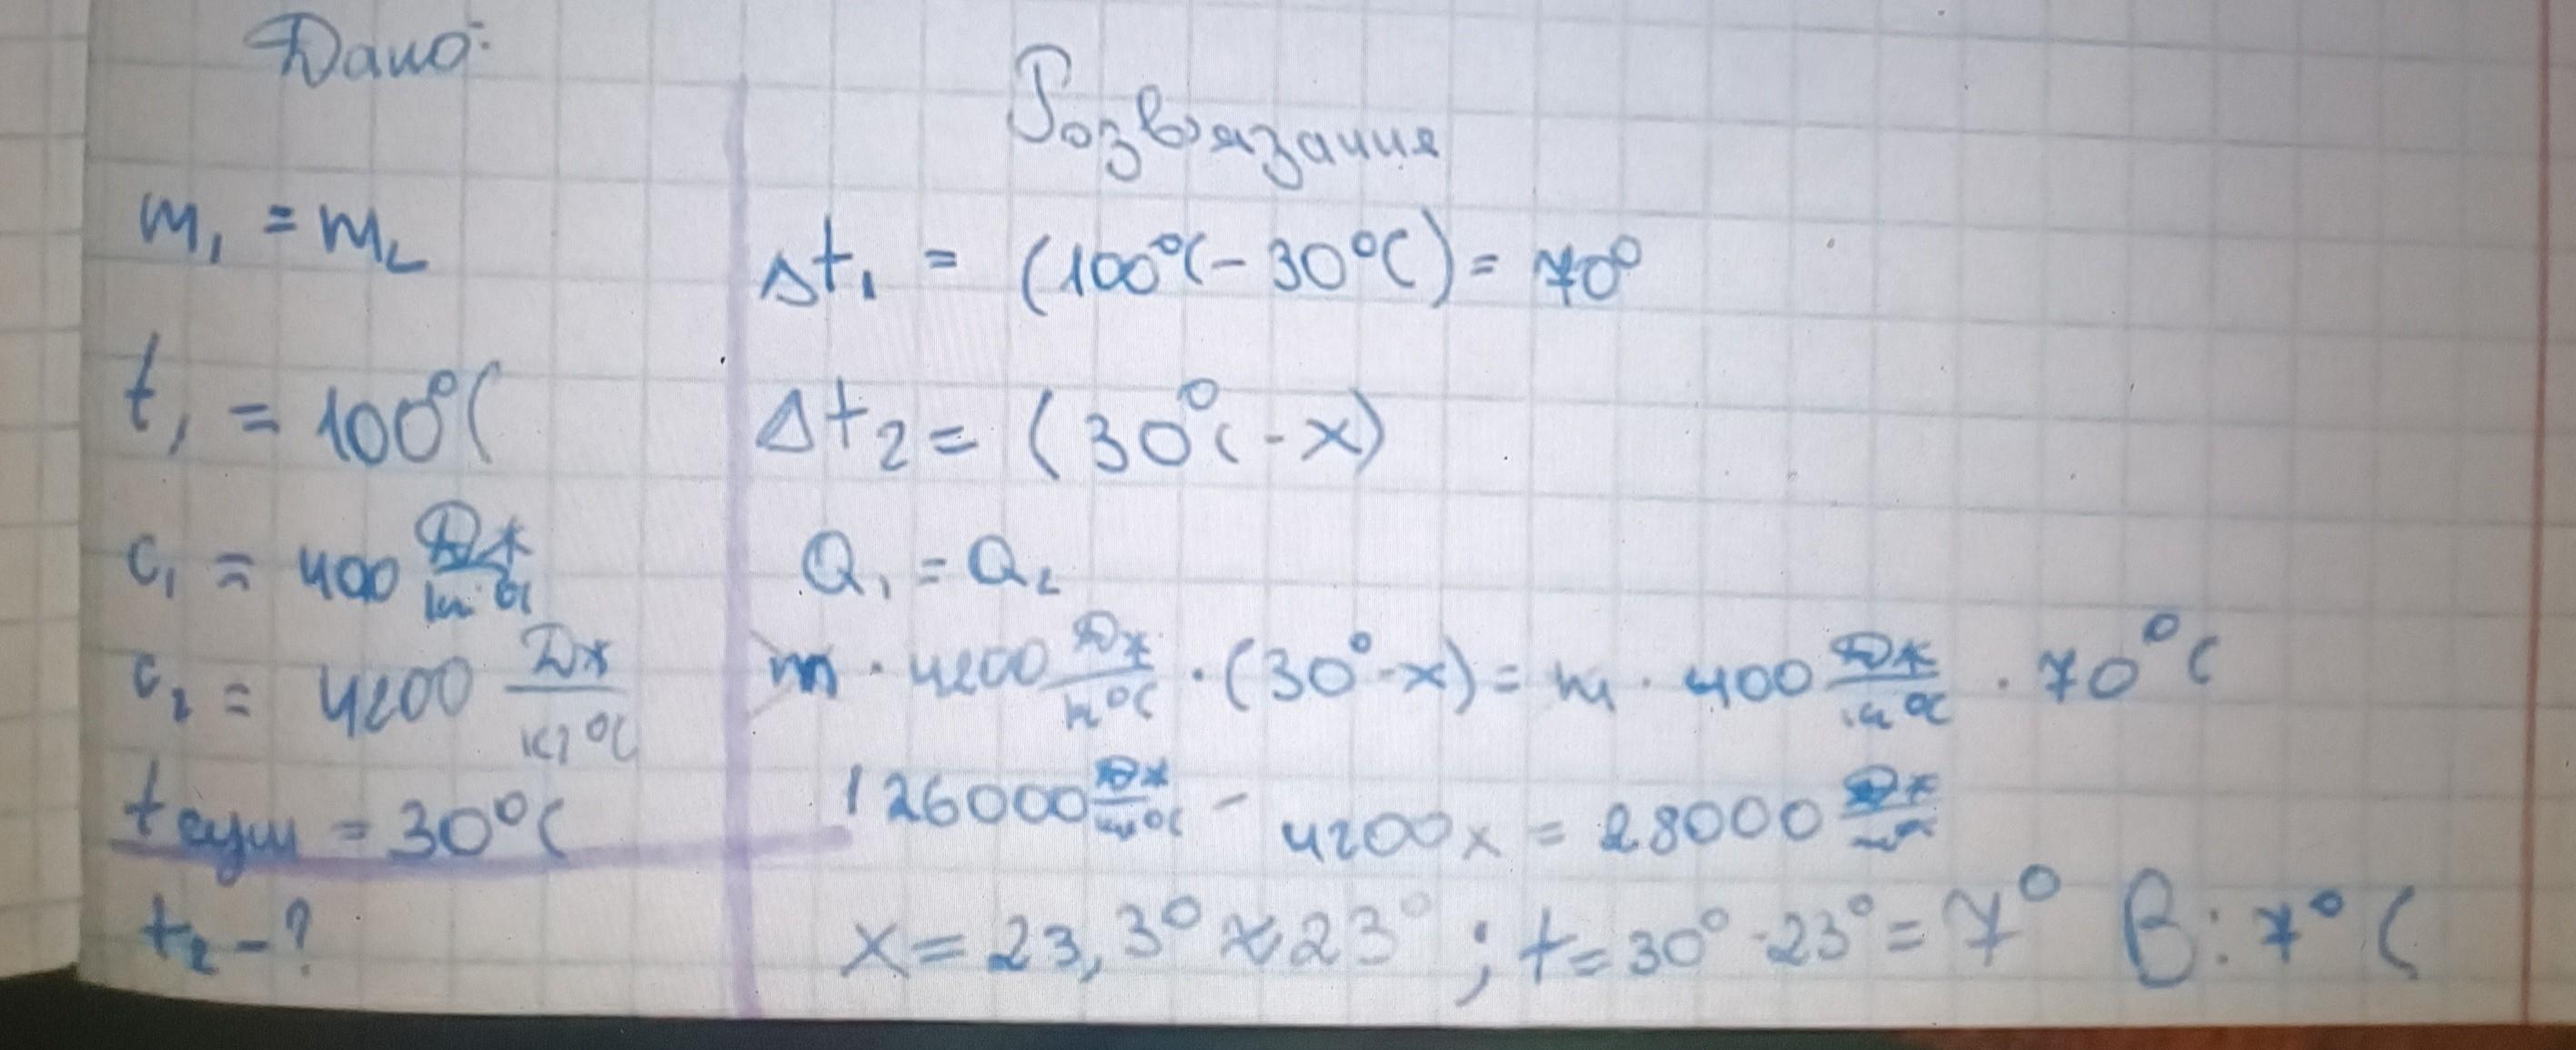 Дано:
m₁ = m₂
t₁ = 100°C
c₁ = 400 Дж/кг·°C
c₂ = 4200 Дж/кг°C
tсум = 30°C
t₂ - ?
Розв'язання
Δt₁ = (100°C - 30°C) = 70°
Δt₂ = (30°C - x)
Q₁ = Q₂
m · 4200 Дж/кг°C · (30° - x) = m · 400 Дж/кг°C · 70°C
126000 Дж/кг°C - 4200x = 28000 Дж/кг°C
x = 23,3° ≈ 23° ; t = 30° - 23° = 7° В: 7°C